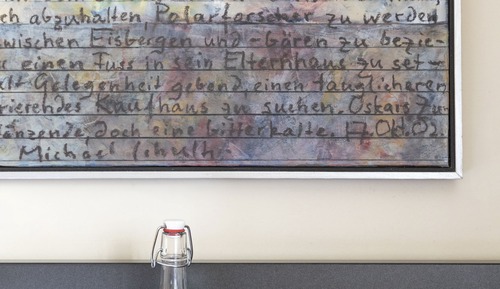 ch abzuhalten, Polarforscher zu werden
zwischen Eisbergen und -Bären zu bezie-
r einen Fuss in sein Elternhaus zu set-
alt Gelegenheit gebend, einen tauglicheren
rierendes Kaufhaus zu suchen. Oskars
änzende, doch eine bitterkalte. 17. Okt. 02.
Michael